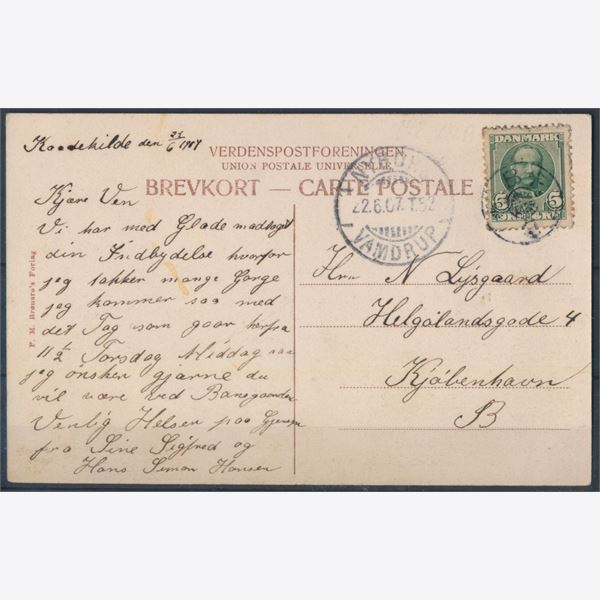 Roedekilde den 21/6 1907
VERDENSPOSTFORENINGEN
UNION POSTALE UNIVERSELLE
BREVKORT — CARTE POSTALE
DANMARK
5 5
22.6.07. T.52
VAMDRUP
Kjære Ven
Vi har med Glæde modtaget
din Indbydelse hvorfor
jeg takker mange Gange
jeg kommer saa med
det Tog som gaar herfra
11 1/2 Torsdag Middag saa
jeg ønsker gjærne du
vil være ved Banegaarden
Venlig Helsen paa Gjensyn
fra Sine Sigfred og
Hans Simon Hansen
Hrn N Lysgaard
Helgolandsgade 4
Kjöbenhavn
B
F. M. Brønner's Forlag